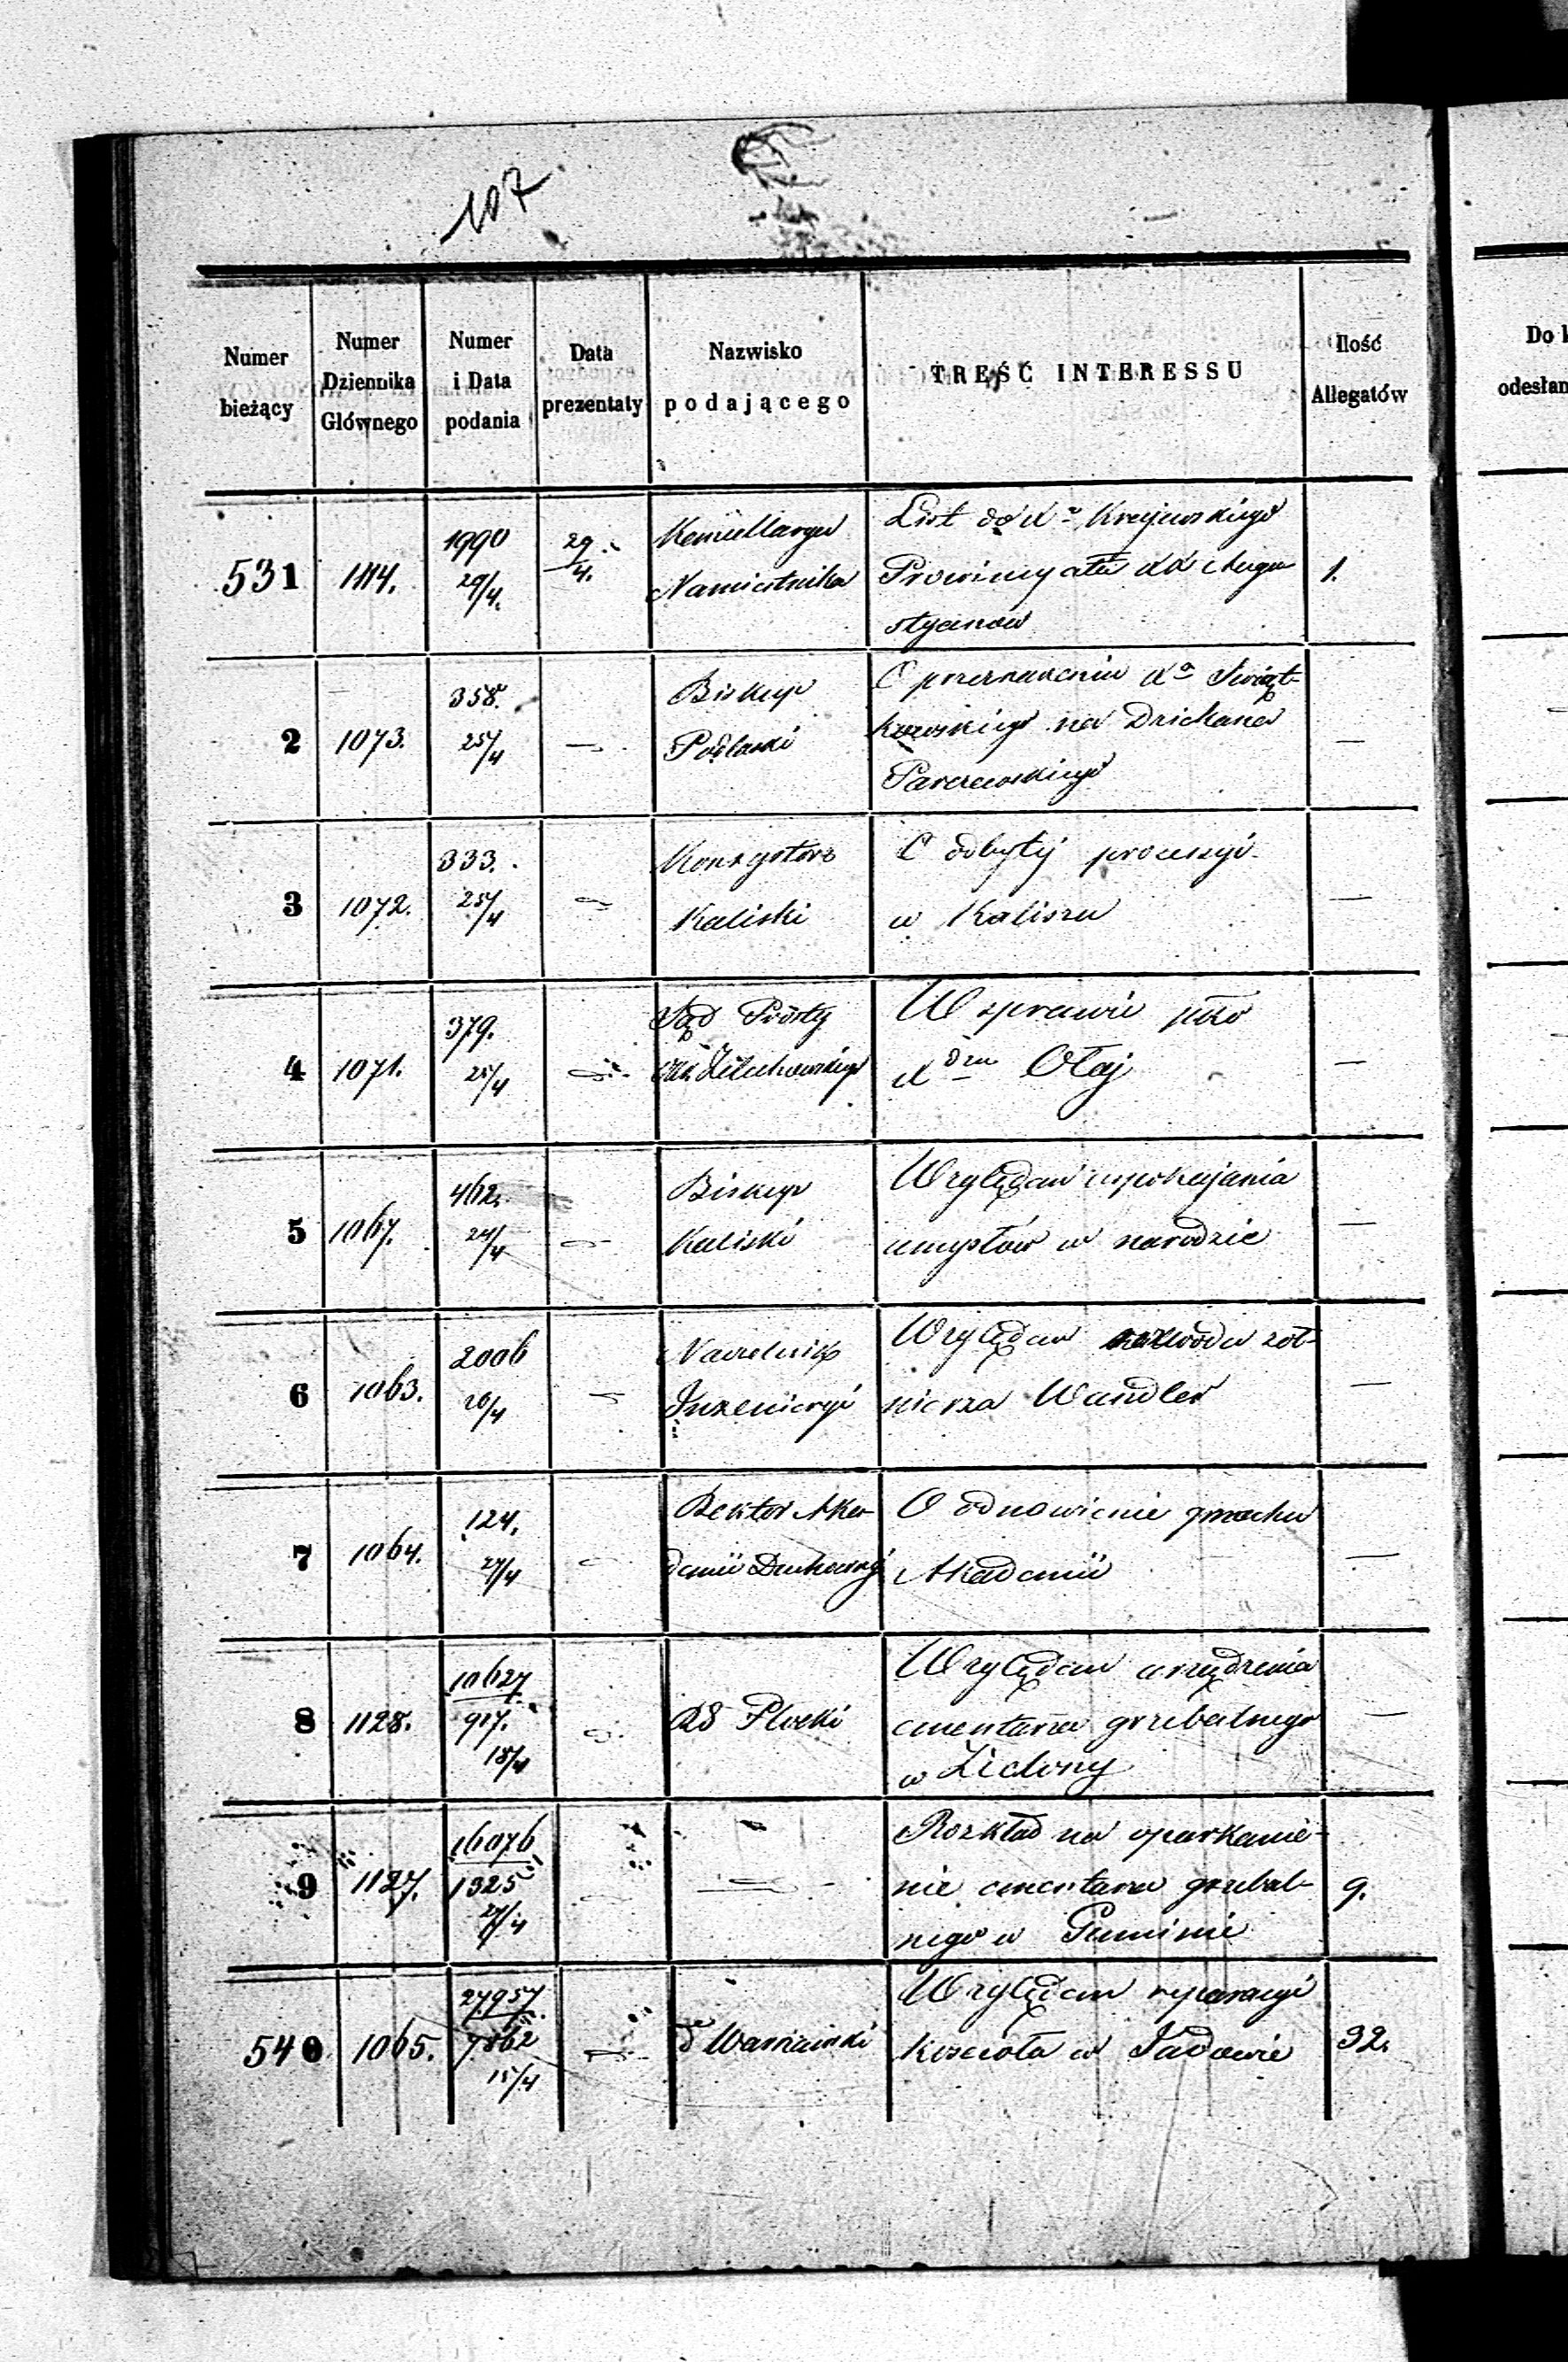 107
Numer bieżący | Numer Dziennika Głównego | Numer i Data podania | Data prezentaty | Nazwisko podającego | TREŚĆ INTERESSU | Ilość Allegatów
Do
odesłan
531 | 1114. | 1990 29/4. | 29/4. | Namiestnika | List do X Krajewskiego
Prowincyała XX Augu-
styanów | 1.
2 | 1073. | 358. 25/4 | — | Biskup Podlaski | O przeznaczeniu Xa Świąt-
kowskiego na Dziekana
Parczewskiego | —
3 | 1072. | 333. 25/4 | — | Konsystorz Kaliski | O odbytéj processyi
w Kaliszu | —
4 | 1071. | 379. 25/4 | — | Sąd Prosty Żelechowskiego | W sprawie pko
Xdzu Ołaj | —
5 | 1067. | 462. 24/4 | — | Biskup Kaliski | Względem uspokajania
umysłów w narodzie | —
6 | 1063. | 2006 20/4 | — | Naczelnik Inżenieryi | Względem rozwodu żoł-
nierza Wandler | —
7 | 1064. | 124. 27/4 | — | Rektor Aka-
demii Duchownéj | O odnowienie gmachu
Akademii | —
8 | 1128. | 10627 917. 18/4 | — | RG Płocki | Względem urządzenia
cmentarza grzebalnego
w Zielony | —
9 | 1127. | 16076 1325 27/4 | — | — | Rozkład na oparkanie-
nie cmentarza grzebal-
nego w Guminie | 9.
540 | 1065. | 27957. 7862 15/4 | — | de Warszawski | Względem reparacyi
kościoła w Jadowie | 32.